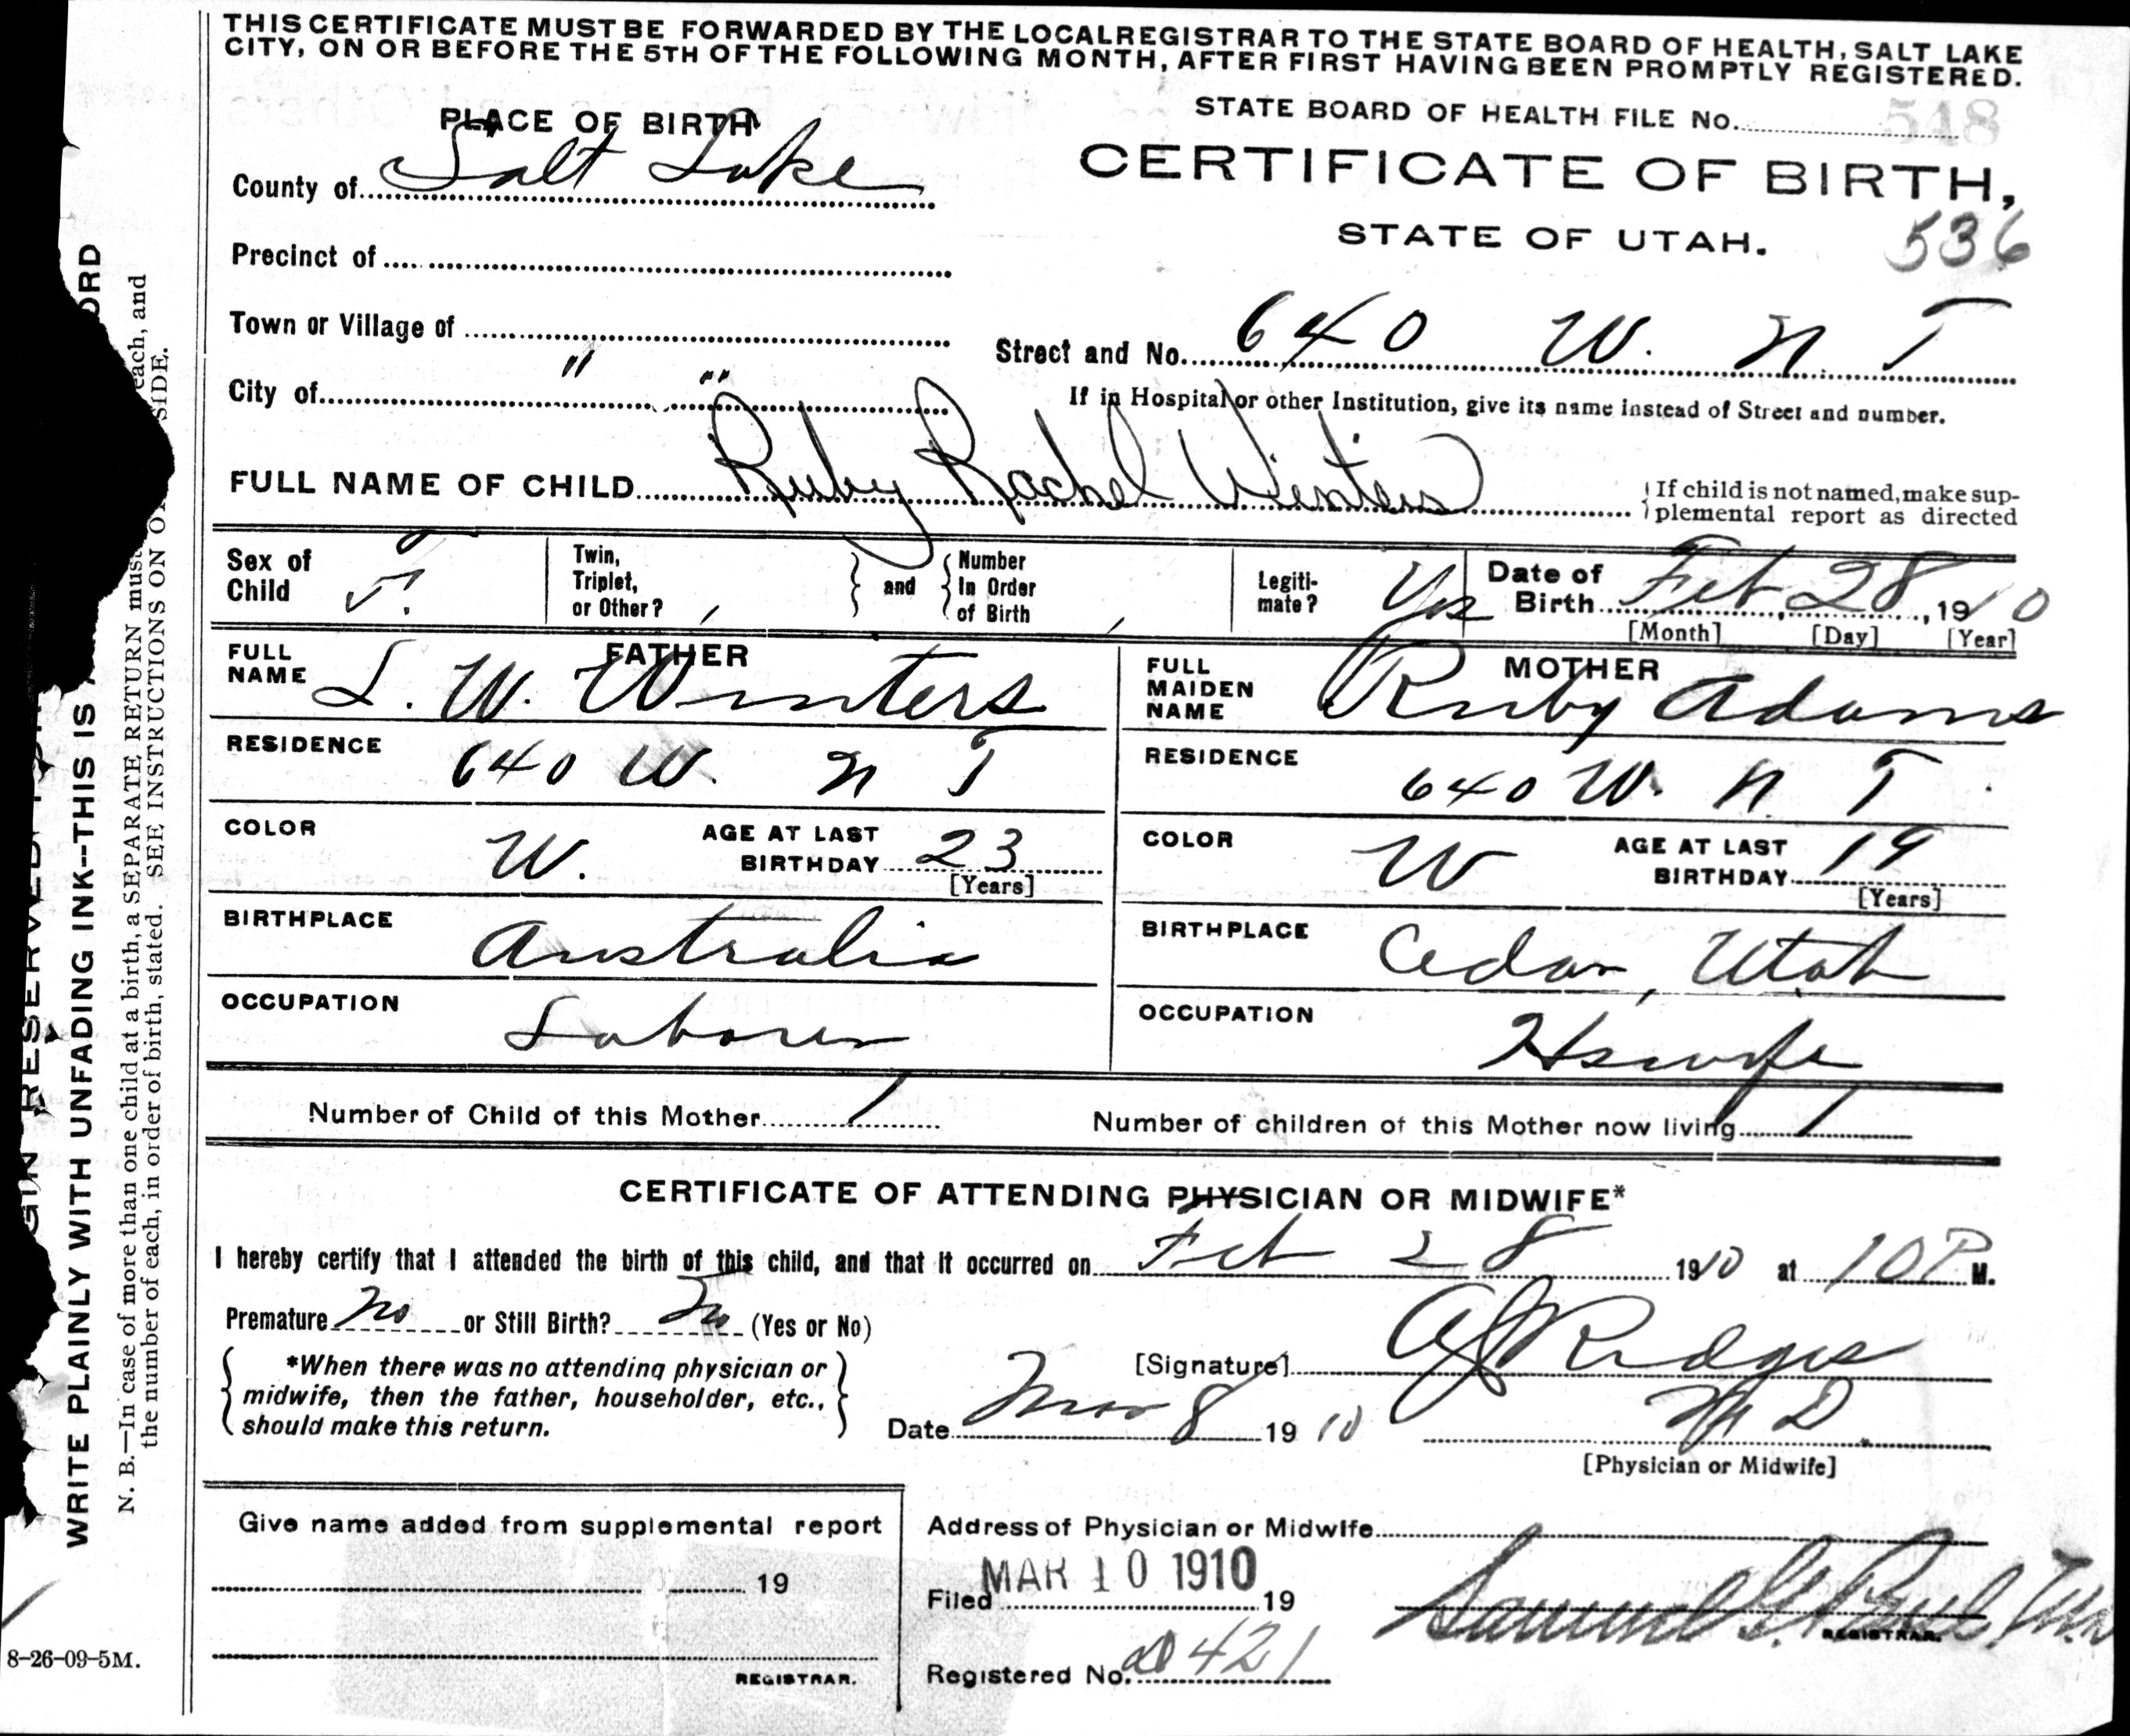 THIS CERTIFICATE MUST BE FORWARDED BY THE LOCAL REGISTRAR TO THE STATE BOARD OF HEALTH, SALT LAKE
CITY, ON OR BEFORE THE 5TH OF THE FOLLOWING MONTH, AFTER FIRST HAVING BEEN PROMPTLY REGISTERED.
PLACE OF BIRTH
STATE BOARD OF HEALTH FILE No. 548
County of Salt Lake
CERTIFICATE OF BIRTH,
STATE OF UTAH. 536
Precinct of
Town or Village of
Street and No. 640 W. N T
City of " "
If in Hospital or other Institution, give its name instead of Street and number.
FULL NAME OF CHILD Ruby Rachel Winters
{If child is not named, make sup-
plemental report as directed
Sex of Child F.
Twin, Triplet, or Other?
} and {
Number In Order of Birth
Legiti-mate? Yes
Date of Birth Feb 28, 1910
[Month] [Day] [Year]
FATHER
FULL NAME L. W. Winters
MOTHER
FULL MAIDEN NAME Ruby Adams
RESIDENCE 640 W. N T
RESIDENCE 640 W. N T
COLOR W. AGE AT LAST BIRTHDAY 23 [Years]
COLOR W AGE AT LAST BIRTHDAY 19 [Years]
BIRTHPLACE Australia
BIRTHPLACE Cedar, Utah
OCCUPATION Laborer
OCCUPATION Hswife
Number of Child of this Mother 1
Number of children of this Mother now living 1
CERTIFICATE OF ATTENDING PHYSICIAN OR MIDWIFE*
I hereby certify that I attended the birth of this child, and that it occurred on Feb 28 1910 at 10 P M.
Premature No or Still Birth? No (Yes or No)
{ *When there was no attending physician or
midwife, then the father, householder, etc.,
should make this return. }
[Signature] Ridges
M D.
Date Mar 8 1910
[Physician or Midwife]
Give name added from supplemental report
19
REGISTRAR.
Address of Physician or Midwife
Filed MAR 10 1910 19
Samuel G. Paul
REGISTRAR.
Registered No. 421
GIN RESERVED
WRITE PLAINLY WITH UNFADING INK--THIS IS A ORD
N. B.—In case of more than one child at a birth, a SEPARATE RETURN must each, and
the number of each, in order of birth, stated. SEE INSTRUCTIONS ON O SIDE.
8-26-09-5M.